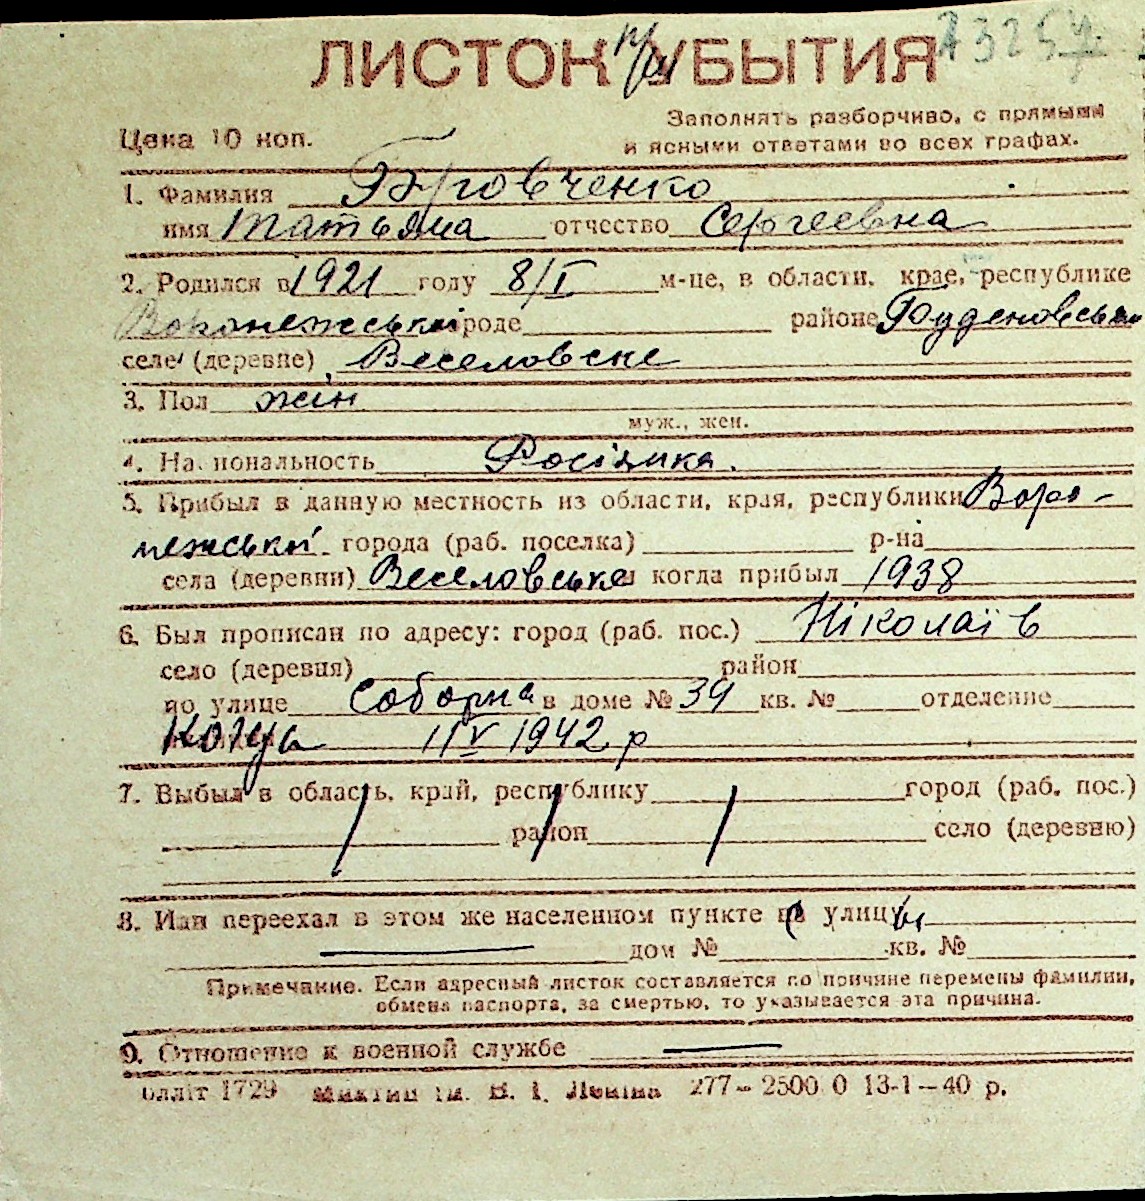 ЛИСТОК УБЫТИЯ
Цена 10 коп.
Заполнять разборчиво, с прямыми
и ясными ответами во всех графах.
1. Фамилия Бровченко
имя Татьяна отчество Сергеевна
2. Родился в 1921 году 8/I м-це, в области, крае, республике
Воронежській городе районе
селе (деревне) Веселовске
3. Пол жін
муж., жен.
4. Национальность Росіянка.
5. Прибыл в данную местность из области, края, республики Воро-
нежськой города (раб. поселка) р-на
села (деревни) Веселовське и когда прибыл 1938
6. Был прописан по адресу: город (раб. пос.) Ніколаїв
село (деревня) район
по улице Соборна в доме № 39 кв. № отделение
1942 р
7. Выбыл в область, край, республику город (раб. пос.)
район село (деревню)
8. Или переехал в этом же населенном пункте на улицу
дом № кв. №
Примечание. Если адресный листок составляется по причине перемены фамилии,
обмена паспорта, за смертью, то указывается эта причина.
9. Отношение к военной службе
1729 ім. В. І. Леніна 277–2500 0 13-1–40 р.